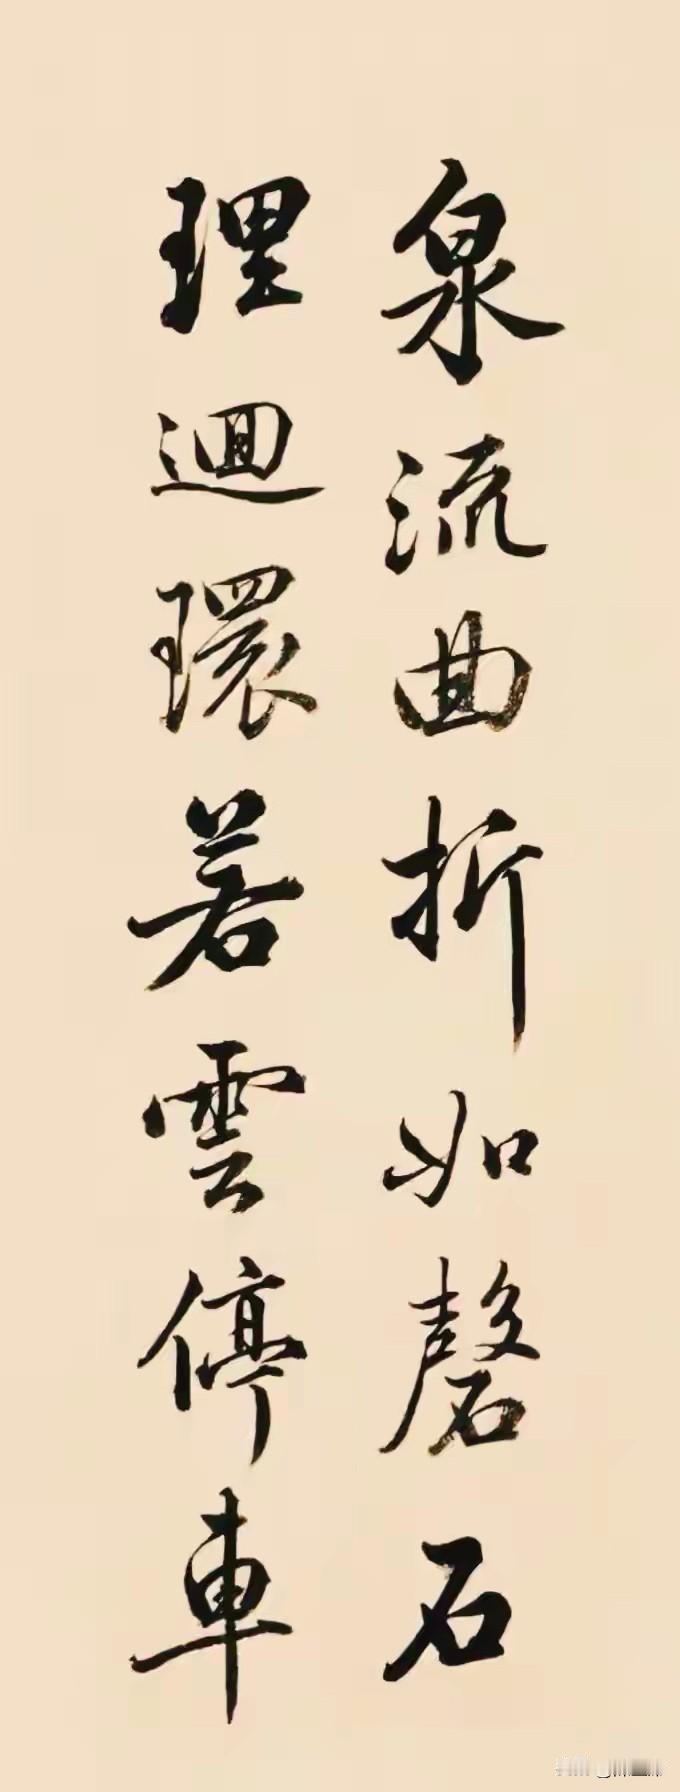 泉流曲折如磬石
理迴環若雲停車